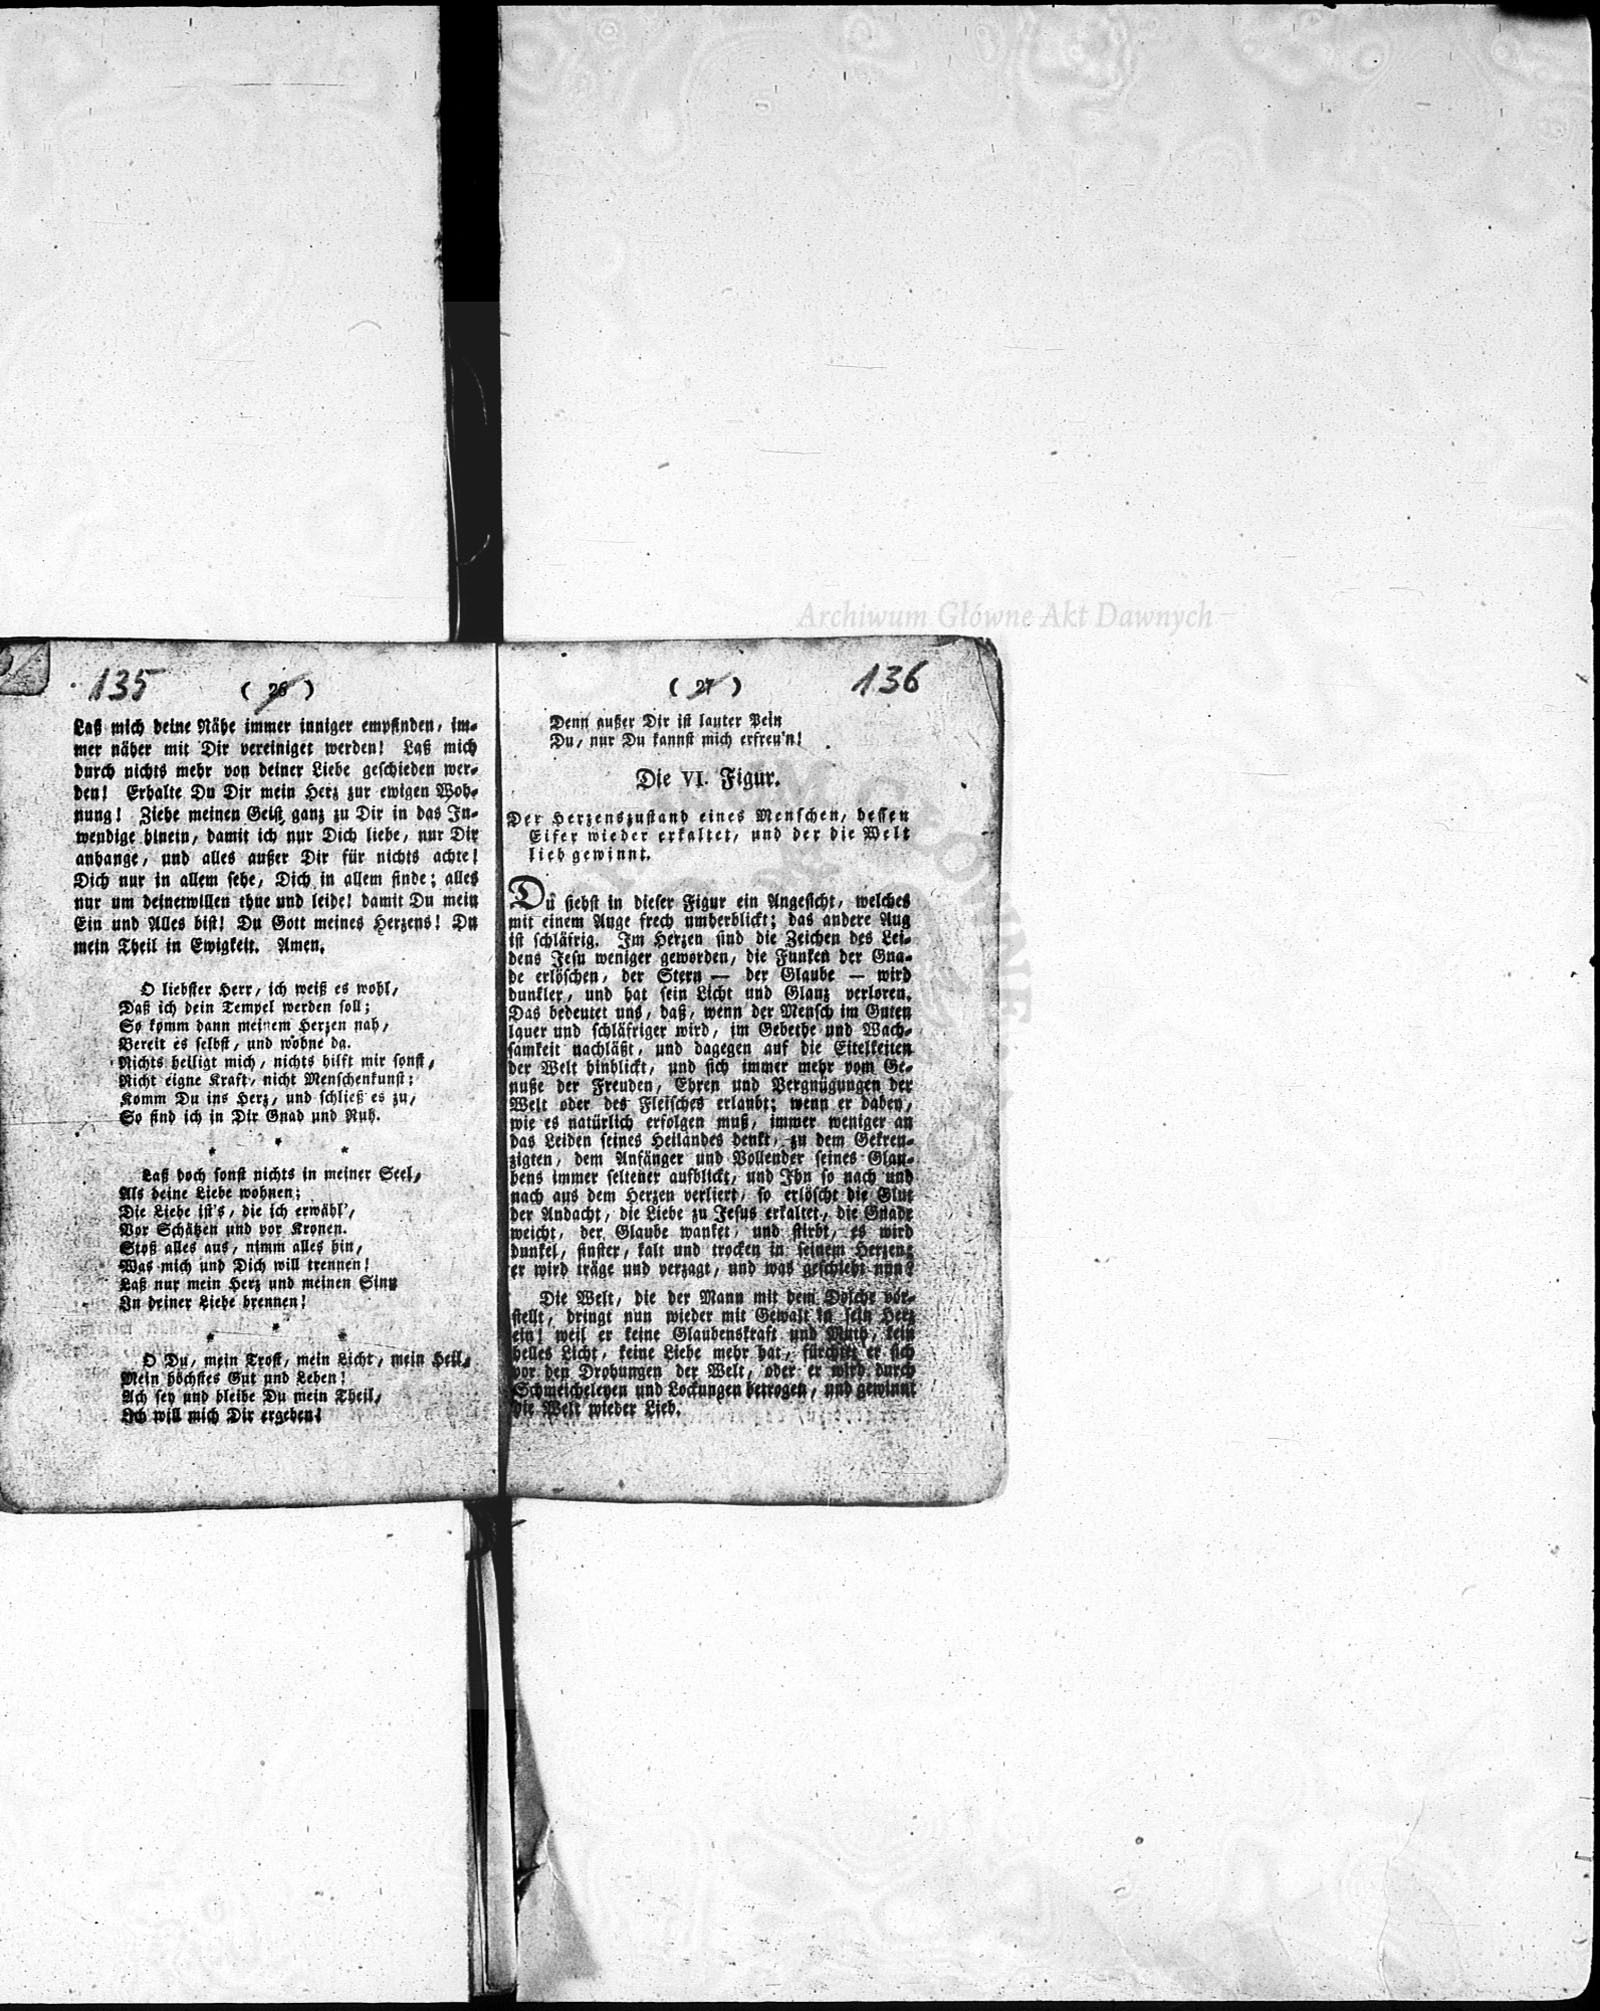 135
( 26 )
Laß mich deine Nähe immer inniger empfinden, im-
mer näher mit Dir vereiniget werden! Laß mich
durch nichts mehr von deiner Liebe geschieden wer-
den! Erhalte Du Dir mein Herz zur ewigen Woh-
nung! Ziehe meinen Geist ganz zu Dir in das In-
wendige hinein, damit ich nur Dich liebe, nur Dir
anhange, und alles außer Dir für nichts achte!
Dich nur in allem sehe, Dich in allem finde; alles
nur um deinetwillen thue und leide! damit Du mein
Ein und Alles bist! Du Gott meines Herzens! Du
mein Theil in Ewigkeit. Amen.
O liebster Herr, ich weiß es wohl,
Daß ich dein Tempel werden soll;
So komm dann meinem Herzen nah,
Bereit es selbst, und wohne da.
Nichts heiligt mich, nichts hilft mir sonst,
Nicht eigne Kraft, nicht Menschenkunst;
Komm Du ins Herz, und schließ es zu,
So find ich in Dir Gnad und Ruh.
* * *
Laß doch sonst nichts in meiner Seel,
Als deine Liebe wohnen;
Die Liebe ist's, die ich erwähl',
Vor Schätzen und vor Kronen.
Stoß alles aus, nimm alles hin,
Was mich und Dich will trennen!
Laß nur mein Herz und meinen Sinn
In deiner Liebe brennen!
* * *
O Du, mein Trost, mein Licht, mein Heil,
Mein höchstes Gut und Leben!
Ach sey und bleibe Du mein Theil,
Ich will mich Dir ergeben!
( 27 )
136
Denn außer Dir ist lauter Pein
Du, nur Du kannst mich erfreu'n!
Die VI. Figur.
Der Herzenszustand eines Menschen, dessen
Eifer wieder erkaltet, und der die Welt
lieb gewinnt.
Du siehst in dieser Figur ein Angesicht, welches
mit einem Auge frech umherblickt; das andere Aug
ist schläfrig. Im Herzen sind die Zeichen des Lei-
dens Jesu weniger geworden, die Funken der Gna-
de erlöschen, der Stern — der Glaube — wird
dunkler, und hat sein Licht und Glanz verloren.
Das bedeutet uns, daß, wenn der Mensch im Guten
lauer und schläfriger wird, im Gebethe und Wach-
samkeit nachläßt, und dagegen auf die Eitelkeiten
der Welt hinblickt, und sich immer mehr vom Ge-
nuße der Freuden, Ehren und Vergnügungen der
Welt oder des Fleisches erlaubt; wenn er dabey,
wie es natürlich erfolgen muß, immer weniger an
das Leiden seines Heilandes denkt, zu dem Gekreu-
zigten, dem Anfänger und Vollender seines Glau-
bens immer seltener aufblickt, und Ihn so nach und
nach aus dem Herzen verliert, so erlöscht die Glut
der Andacht, die Liebe zu Jesus erkaltet, die Gnade
weicht, der Glaube wanket, und stirbt, es wird
dunkel, finster, kalt und trocken in seinem Herzen;
er wird träge und verzagt, und was geschieht nun?
Die Welt, die der Mann mit dem Dolche vor-
stellt, dringt nun wieder mit Gewalt in sein Herz
ein! weil er keine Glaubenskraft und Muth, kein
helles Licht, keine Liebe mehr hat, fürchtet er sich
vor den Drohungen der Welt, oder er wird durch
Schmeicheleyen und Lockungen betrogen, und gewinnt
die Welt wieder Lieb.
Archiwum Główne Akt Dawnych